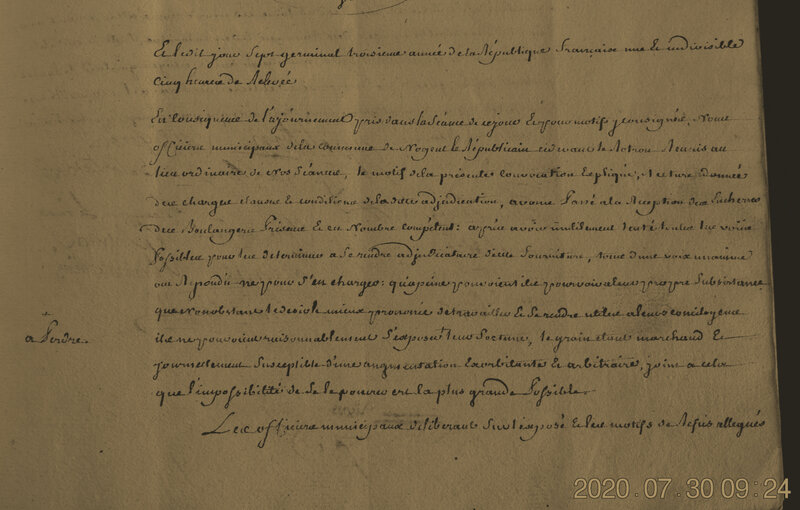 Et ledit jour Sept germinal troisieme année de la République française une et indivisible
cinq heures de Relevée
En Consequence de l'ajournement pris dans la Séance de ce jour et pour motifs y consignés, Nous
officiers municipaux de la commune de Nogent le Républicain cidevant le Rotrou Reunis au
lieu ordinaire de nos Séances, le motif de la présente convocation Expliqué, Lecture donnée
des charges clauses et conditions de la dite adjudication, avons Passé a la Reception des Encheres
des Boulangers Présens et en Nombre compétent: après avoir inutilement tenté toutes les voües
Possibles pour les determiner a Se rendre adjudicataires de cette fourniture, tous d'une voix unanime
ont Repondu ne pour S'en charger: qu'apeine pouvoient ils pourvoir a leur propre Subsistance
que nonobstant le desir le mieux prononcé de travailler et de se rendre utiles a leurs concitoyens
ils ne pouvoient raisonnablement S'exposer leur fortune, le grain etant marchand et
journellement Susceptible d'une augmentation Exorbitante et arbitraire, joint a cela
que l'impossibilité de Se le pourvoir est la plus grande Possible.
Les officiers municipaux deliberant Sur l'exposé et les motifs de Refus allegués
+
a Perdre.
2020.07.30 09:24